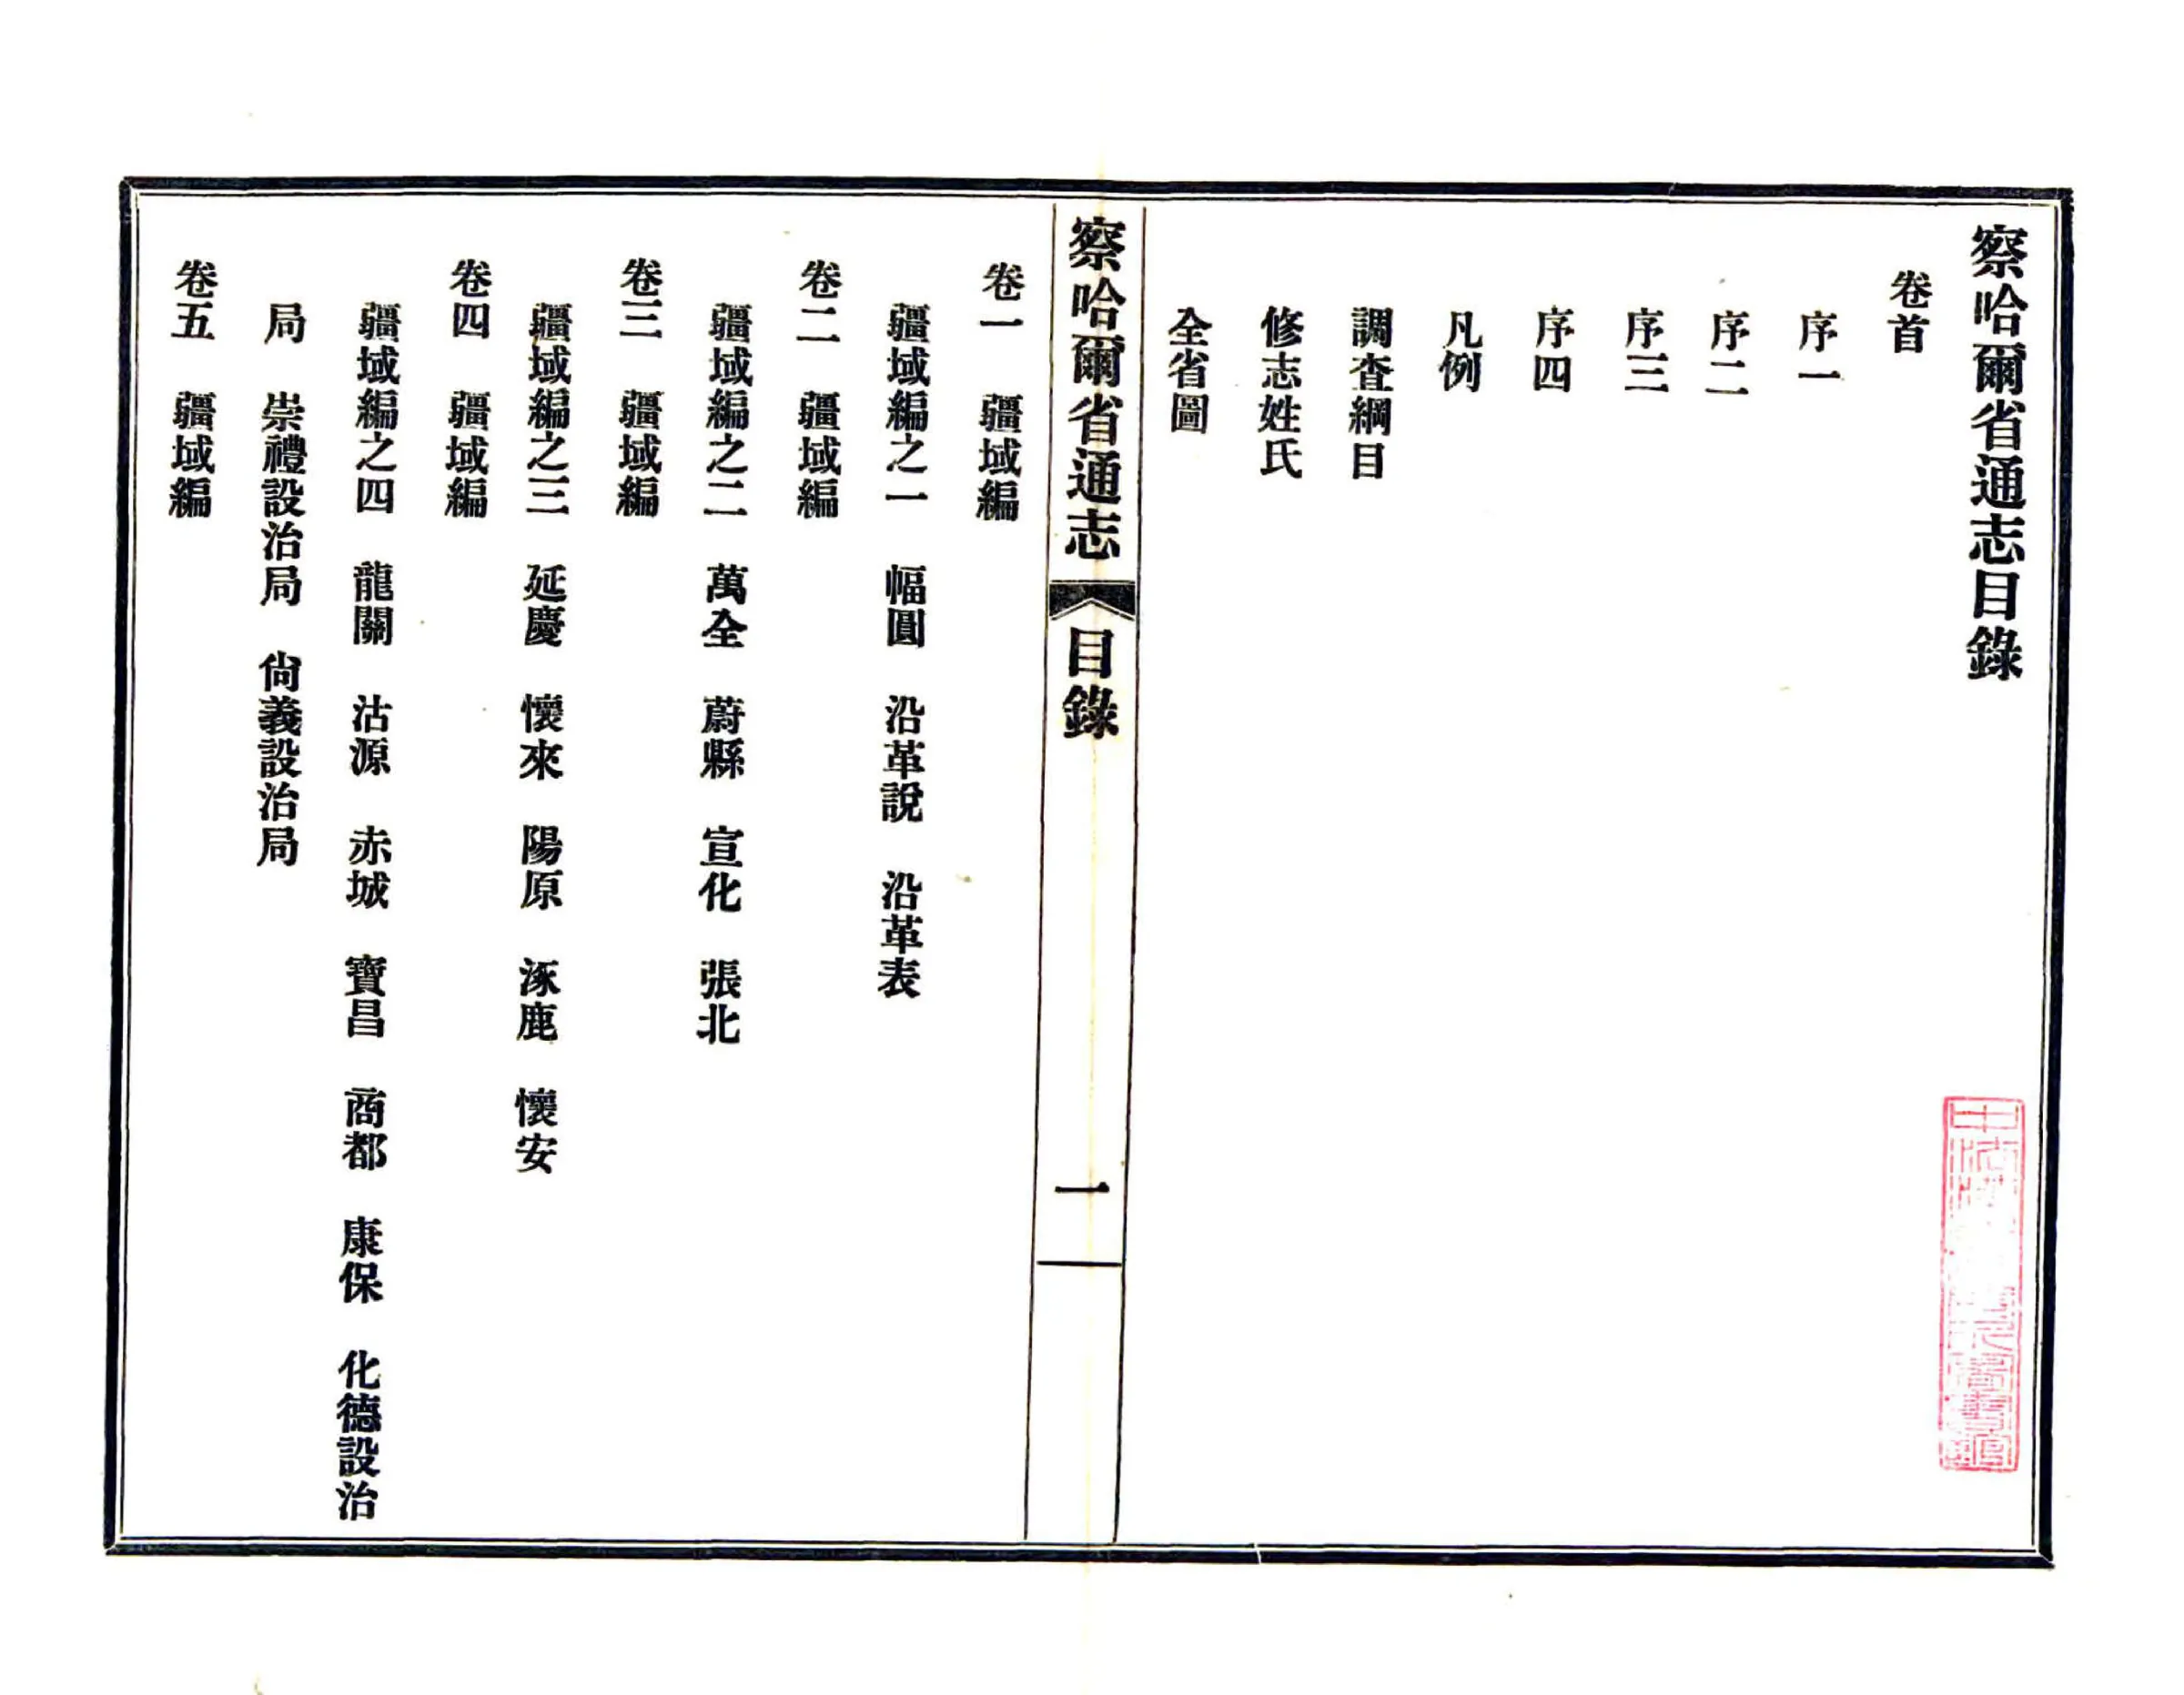 察哈爾省通志目錄
卷首
序一
序二
序三
序四
凡例
調查綱目
修志姓氏
全省圖
察哈爾省通志 目錄 一
卷一 疆域編
疆域編之一 幅圓 沿革說 沿革表
卷二 疆域編
疆域編之二 萬全 蔚縣 宣化 張北
卷三 疆域編
疆域編之三 延慶 懷來 陽原 涿鹿 懷安
卷四 疆域編
疆域編之四 龍關 沽源 赤城 寶昌 商都 康保 化德設治
局 崇禮設治局 尙義設治局
卷五 疆域編